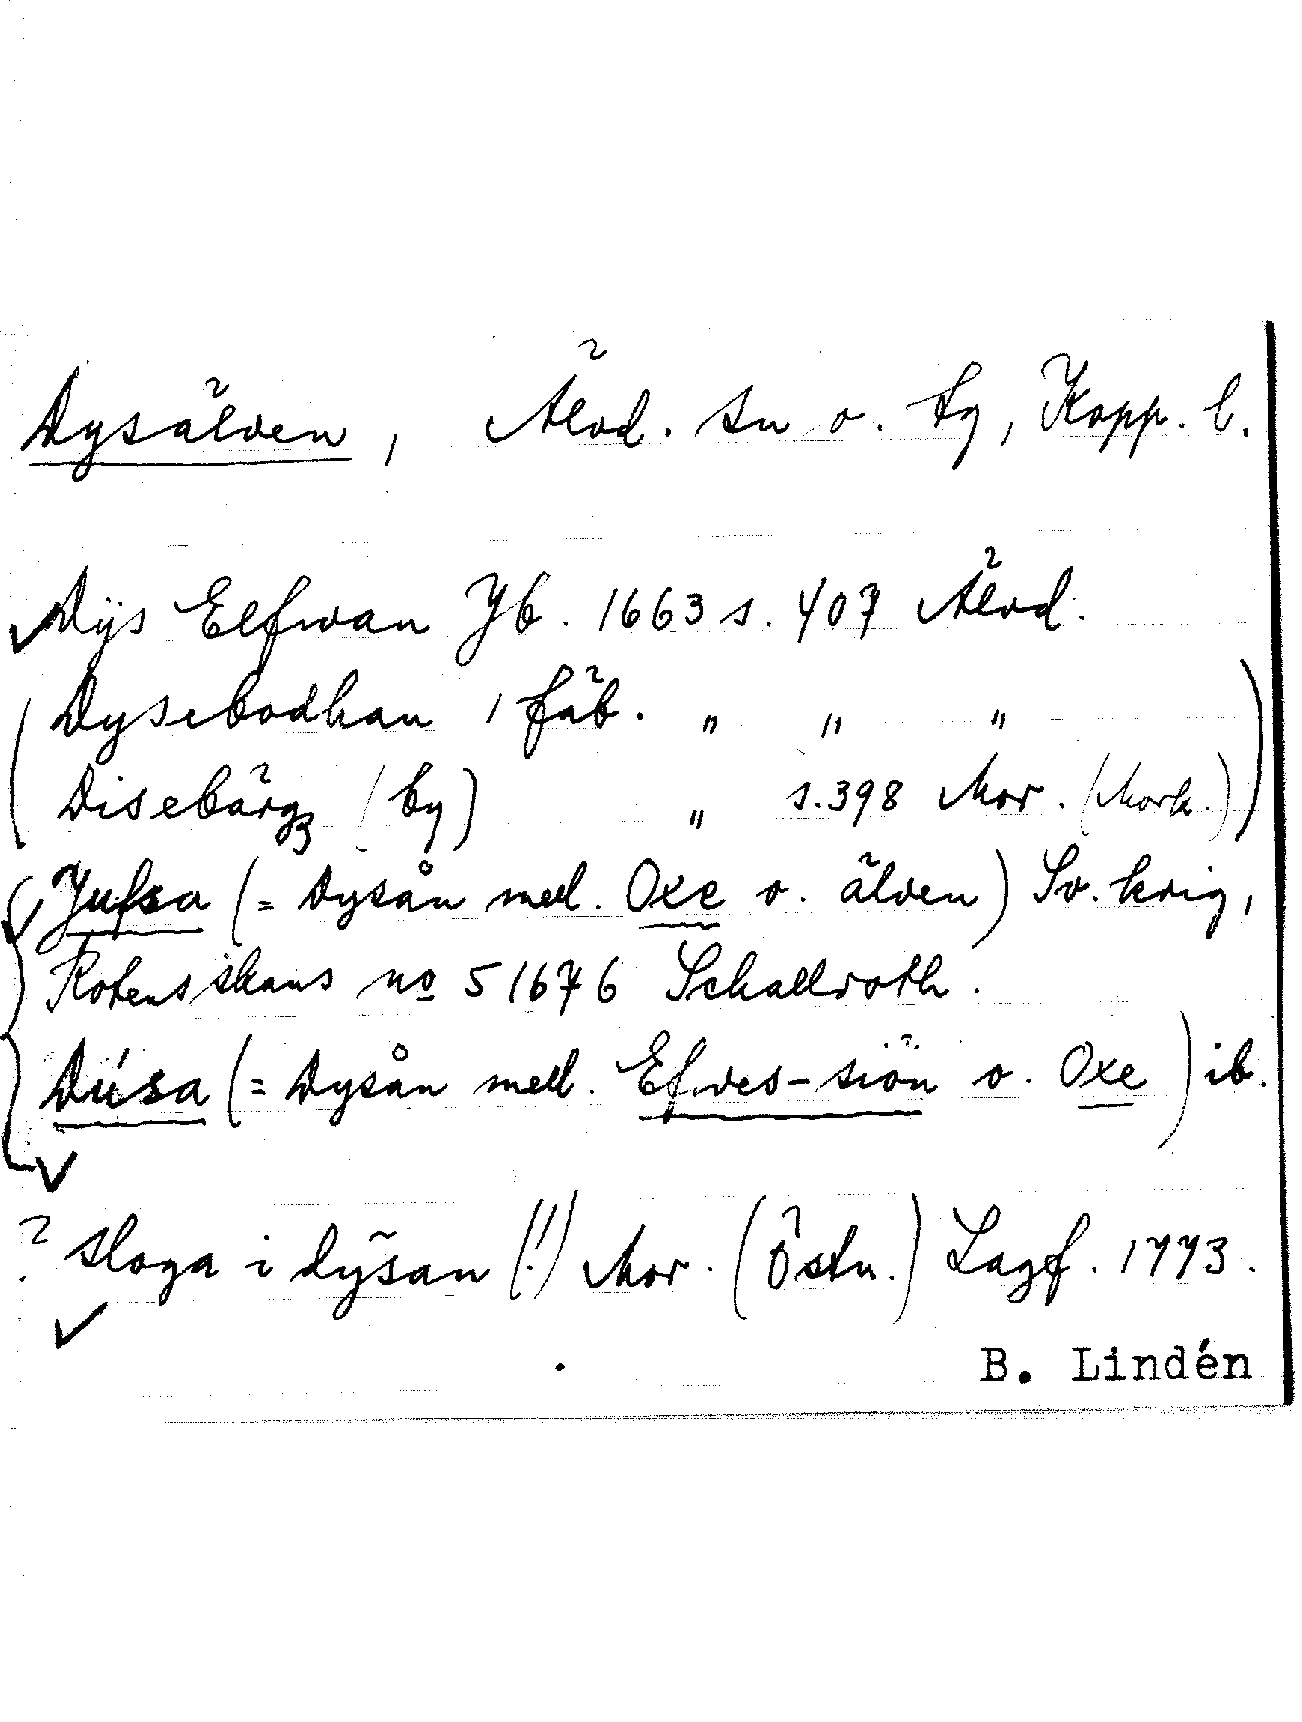 Dysälven, Älvd. sn o. tg, Kopp. l.
Dÿs Elfwan Jb. 1663 s. 407 Älvd.
(Dysebodhan 1 fäb. " " "
Disebärg (by) " s. 398 Mor. (Mork.))
Jufsa (= Dysån mell. Oxe o. älven) Sv. krig,
Rotens skans no 5 1676 Schallroth.
Dúsa (= Dysån mell. Efwes-siön o. Oxe) ib.
? sloga i dÿsan (!) Mor. (Östn.) Lagf. 1773.
B. Lindén